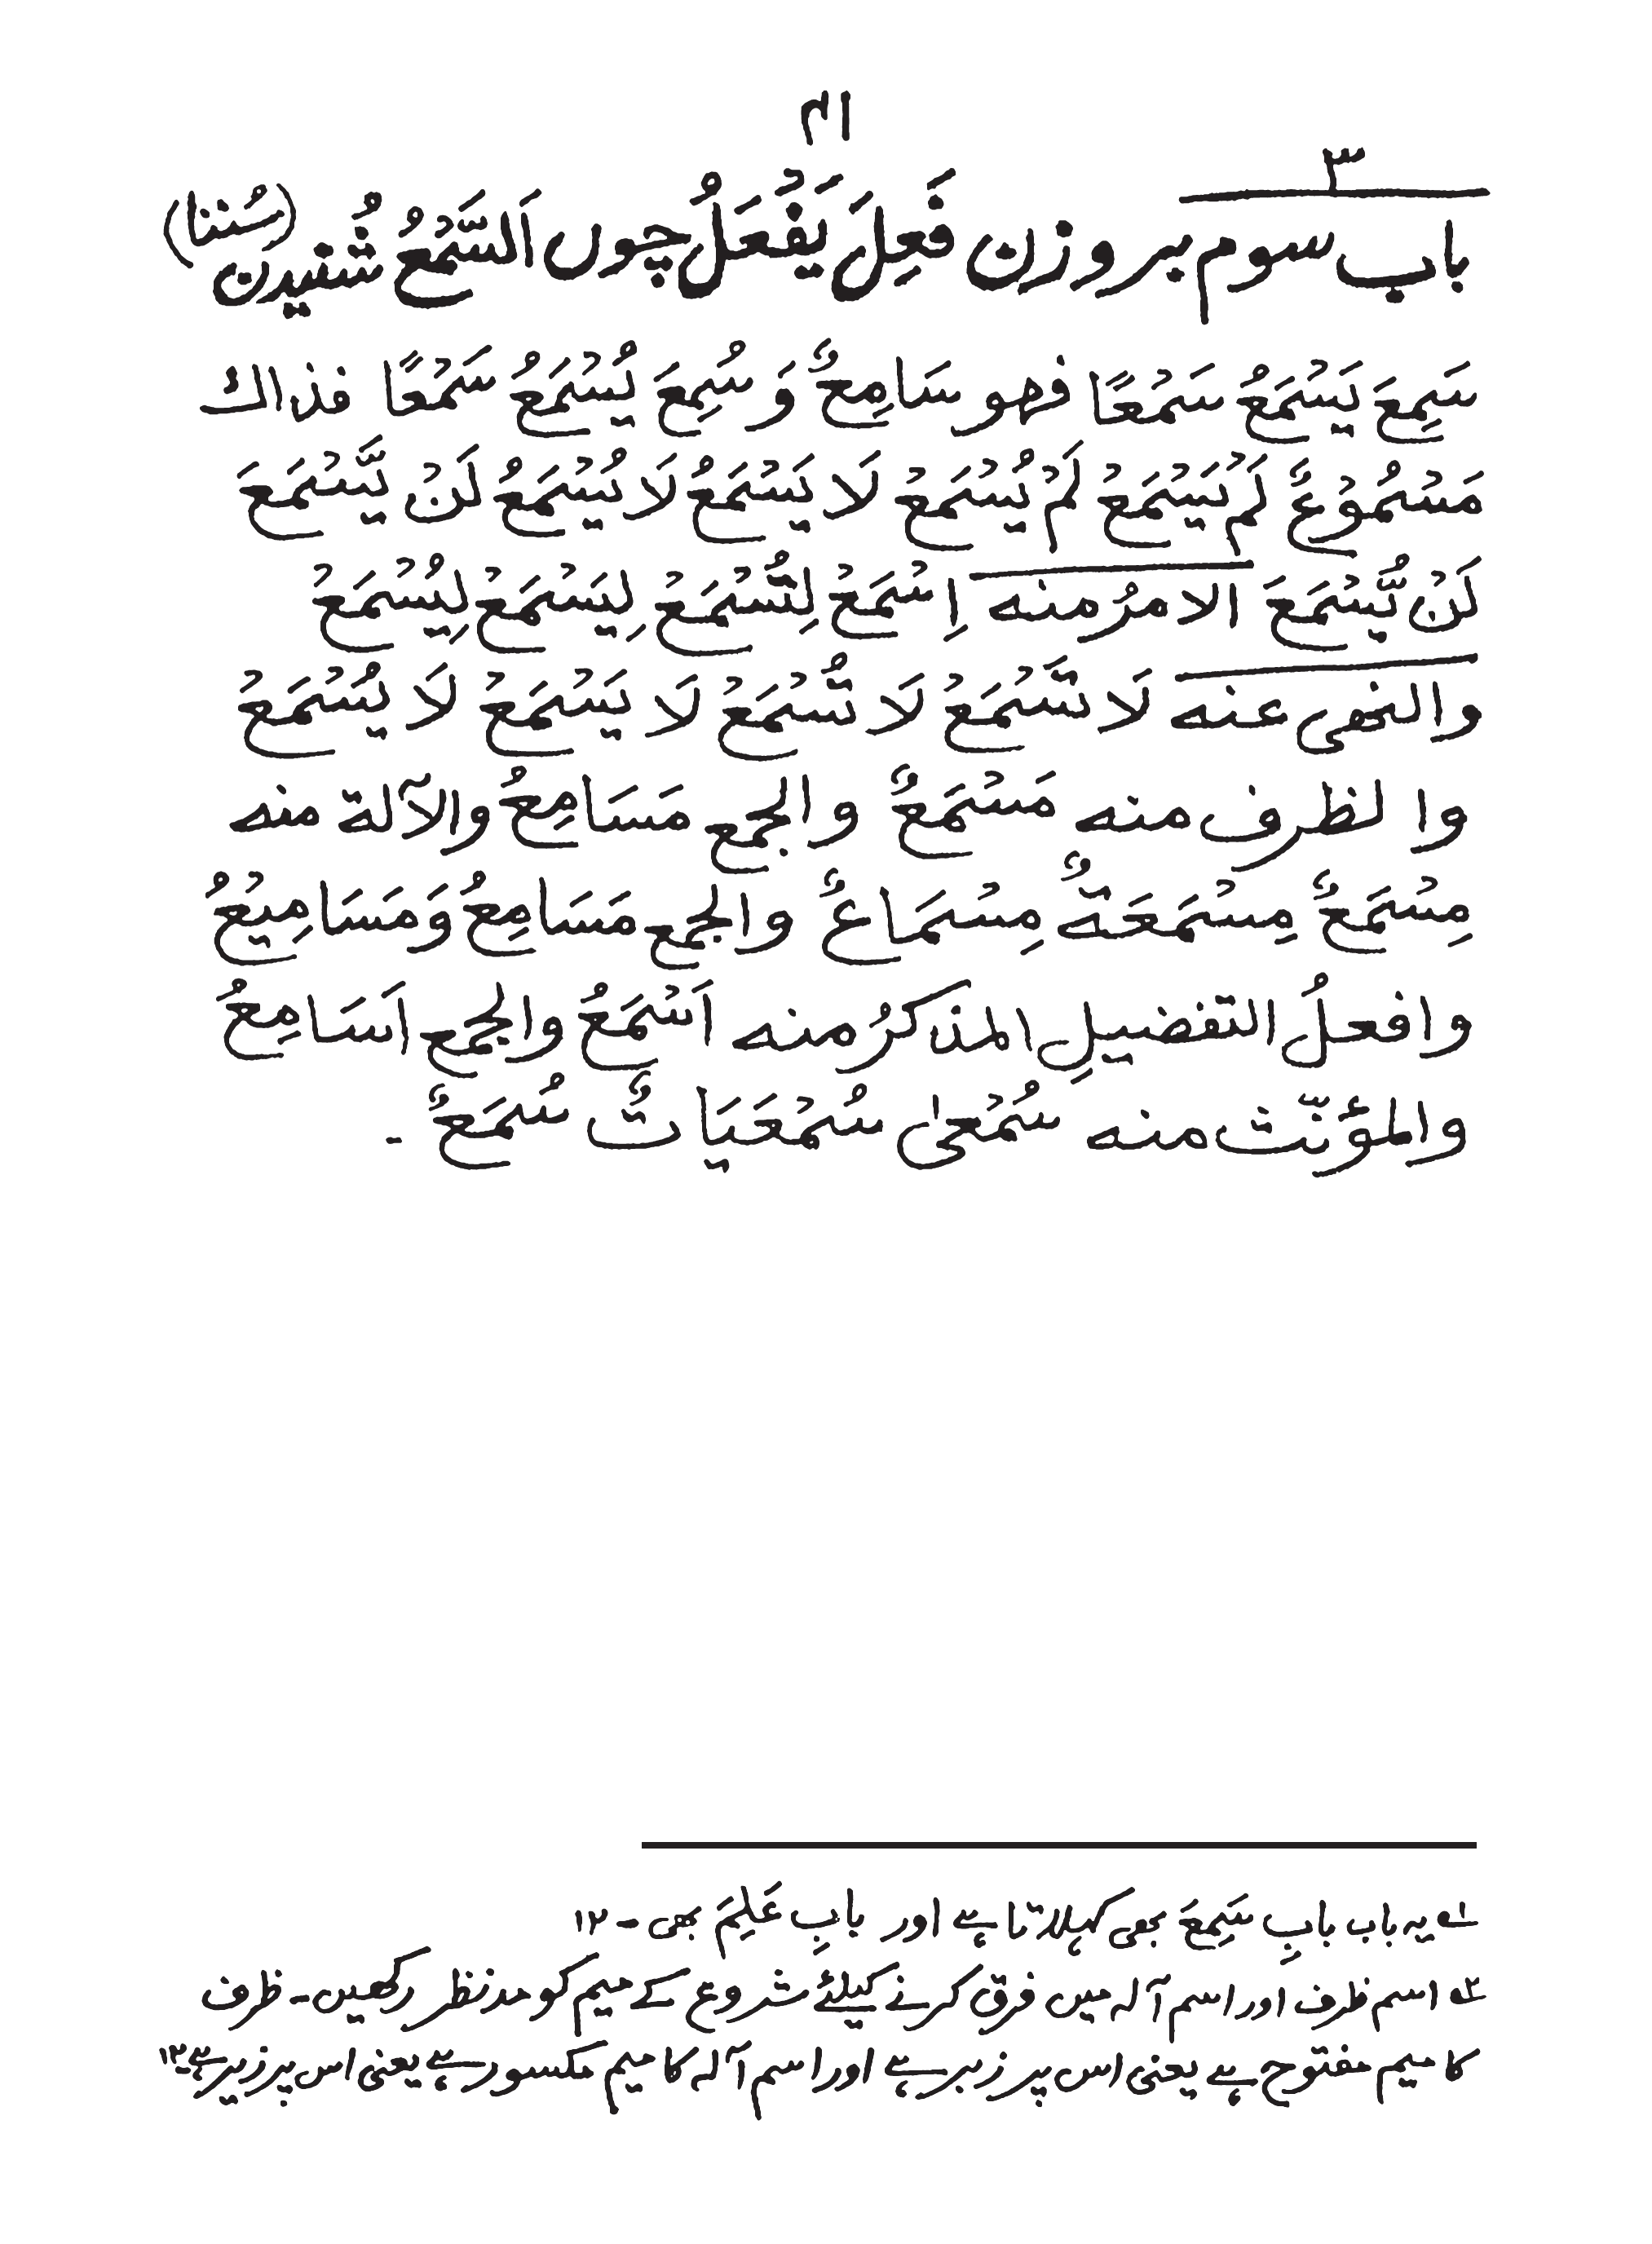 ۴۱
۳
باب سوم بروزن فَعِلَ يَفْعَلُ چوں اَلسَّمْعُ شُنیدن (سُننا)
سَمِعَ يَسْمَعُ سَمْعًا فهو سَامِعٌ وَ سُمِعَ يُسْمَعُ سَمْعًا فذاك
مَسْمُوْعٌ لَمْ يَسْمَعْ لَمْ يُسْمَعْ لَا يَسْمَعُ لَا يُسْمَعُ لَنْ يَّسْمَعَ
لَنْ يُّسْمَعَ الامرُ منه اِسْمَعْ لِتُسْمَعْ لِيَسْمَعْ لِيُسْمَعْ
والنهی عنه لَا تَسْمَعْ لَا تُسْمَعْ لَا يَسْمَعْ لَا يُسْمَعْ
والظرف منه مَسْمَعٌ والجمع مَسَامِعُ والآلة منه
مِسْمَعٌ مِسْمَعَةٌ مِسْمَاعٌ والجمع مَسَامِعُ وَمَسَامِيْعُ
وافعلُ التفضيلِ المذكرُ منه اَسْمَعُ والجمع اَسَامِعُ
والمؤنّث منه سُمْعیٰ سُمْعَيَاتٌ سُمَعٌ ۔
۱؎ یہ باب بابِ سَمِعَ بھی کہلاتا ہے اور بابِ عَلِمَ بھی ۔ ۱۲
۲؎ اسم ظرف اور اسم آلہ میں فرق کرنے کیلئے شروع کے میم کو مدنظر رکھیں ۔ ظرف
کا میم مفتوح ہے یعنی اس پر زبر ہے اور اسم آلہ کا میم مکسور ہے یعنی اس پر زیر ہے ۔ ۱۲